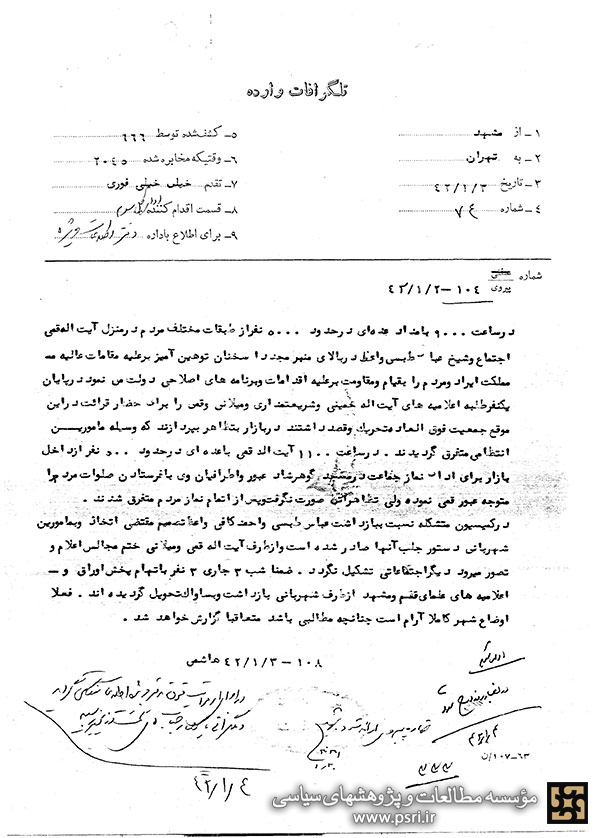 تلگرافات وارده
۱ـ از مشهد
۲ـ به تهران
۳ـ تاریخ ۴۲/۱/۳
۴ـ شماره ۷۴
۵ـ کشف شده توسط ۶۶۶
۶ـ وقتیکه مخابره شده ۲۰۴۵
۷ـ تقدم خیلی خیلی فوری
۸ـ قسمت اقدام کننده اداره کل سوم
۹ـ برای اطلاع باداره دفتر اطلاعات ویژه
شماره
پیروی ۱۰۴-۴۲/۱/۲
درساعت ۹۰۰ بامداد عده‌ای درحدود ۵۰۰۰ نفراز طبقات مختلف مردم درمنزل آیت اله قمی
اجتماع وشیخ عباس طبسی واعظ دربالای منبر مجددا سخنان توهین آمیز برعلیه مقامات عالیه
مملکت ایراد ومردم را بقیام ومقاومت برعلیه اقدامات وبرنامه های اصلاحی دولت می نمود درپایان
یکنفرطلبه اعلامیه های آیت اله خمینی وشریعتمداری ومیلانی وقمی را برای حضار قرائت دراین
موقع جمعیت فوق العاده تحریک وقصد داشتند دربازار بتظاهر بپردازند که وسیله مامورین
انتظامی متفرق گردیدند . درساعت ۱۱۰۰ آیت اله قمی باعده ای درحدود ۵۰۰ نفر ازداخل
بازار برای ادای نماز جماعت درمسجد گوهرشاد عبور واطرافیان وی بافرستادن صلوات مردم را
متوجه عبور قمی نموده ولی تظاهراتی صورت نگرفت وپس از اتمام نماز مردم متفرق شدند .
درکمیسیون متشکله نسبت ببازداشت عباس طبسی واحمد کافی واعظ تصمیم مقتضی اتخاذ وبمامورین
شهربانی دستور جلب آنها صادر شده است وازطرف آیت اله قمی ومیلانی ختم مجالس اعلام و
تصور میرود دیگر اجتماعاتی تشکیل نگردد . ضمنا شب ۳ جاری ۳ نفر باتهام پخش اوراق و ـ
اعلامیه های علمای قم ومشهد ازطرف شهربانی بازداشت وبساواک تحویل گردیده اند . فعلا
اوضاع شهر کاملا آرام است چنانچه مطالبی باشد متعاقبا گزارش خواهد شد .
۱۰۸-۴۲/۱/۳ هاشمی
۶۳-۱۰۷/ن
۴۲/۱/۴
مؤسسه مطالعات و پژوهشهای سیاسی
www.psri.ir